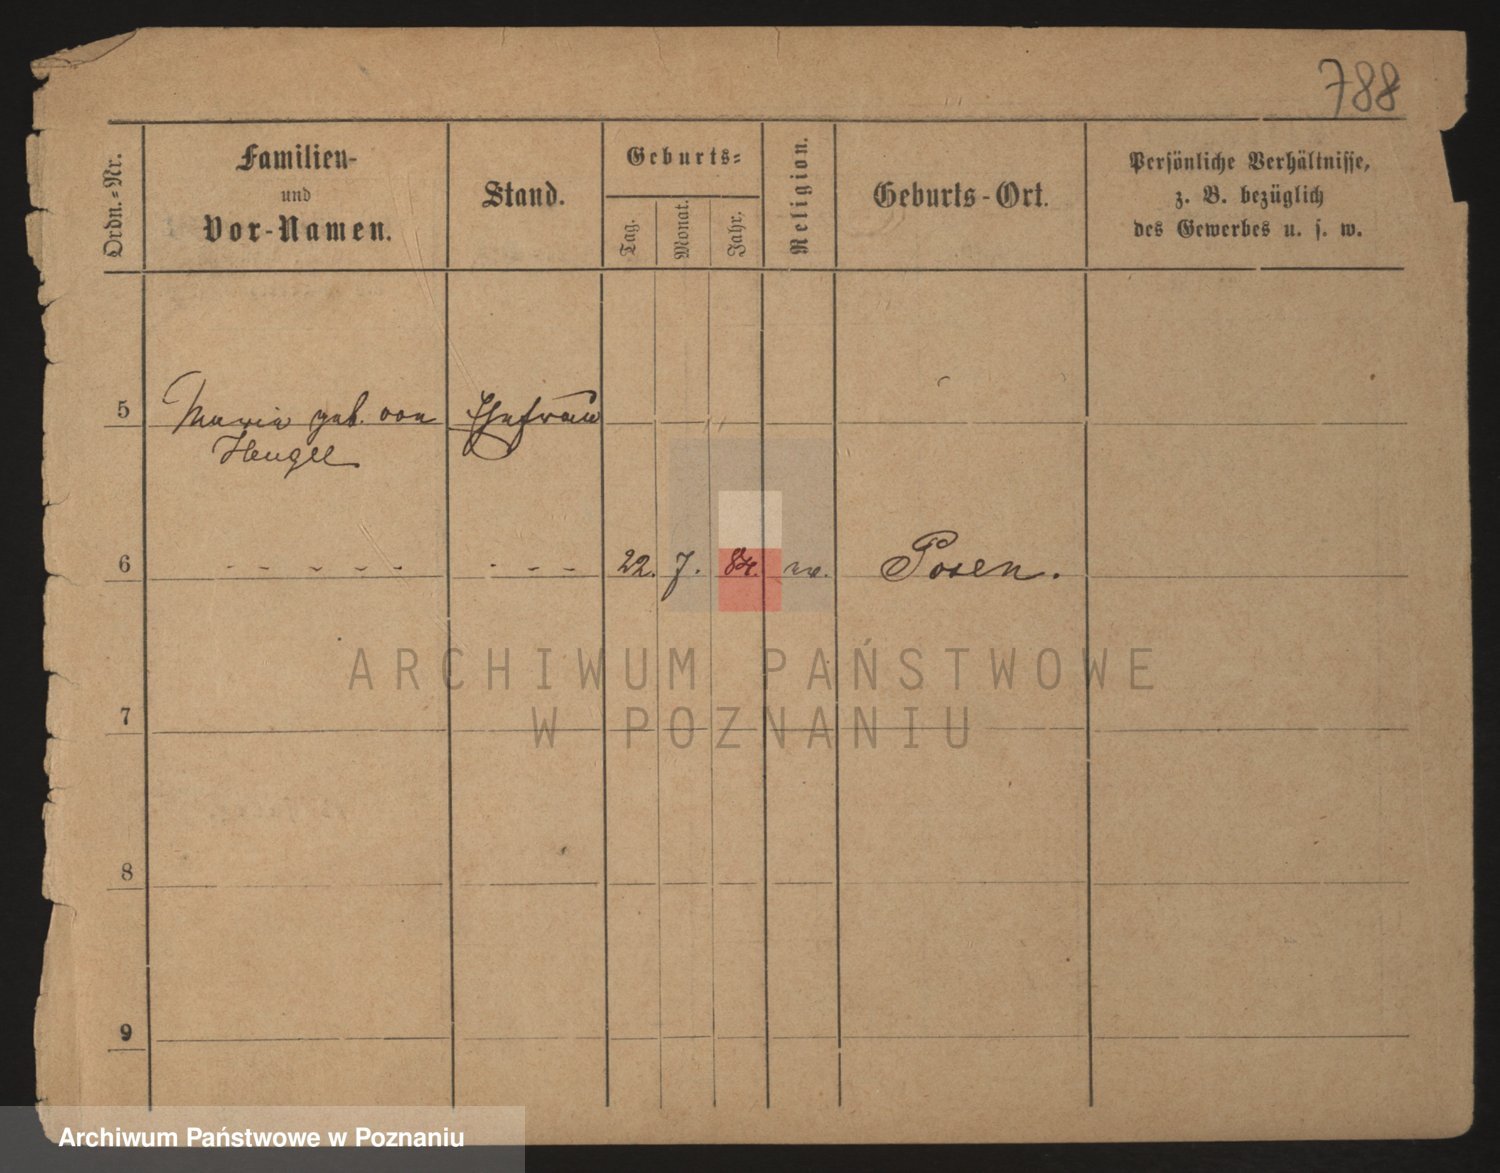 788
Ordn.-Nr.
Familien-
und
Vor-Namen.
Stand.
Geburts-
Tag.
Monat.
Jahr.
Religion.
Geburts-Ort.
Persönliche Verhältnisse,
z. B. bezüglich
des Gewerbes u. s. w.
5 Maria geb. von Ehefrau
Heugel
6 - - - - - - - - 22. 7. 84. Posen.
ARCHIWUM PAŃSTWOWE
W POZNANIU
7
8
9
Archiwum Państwowe w Poznaniu